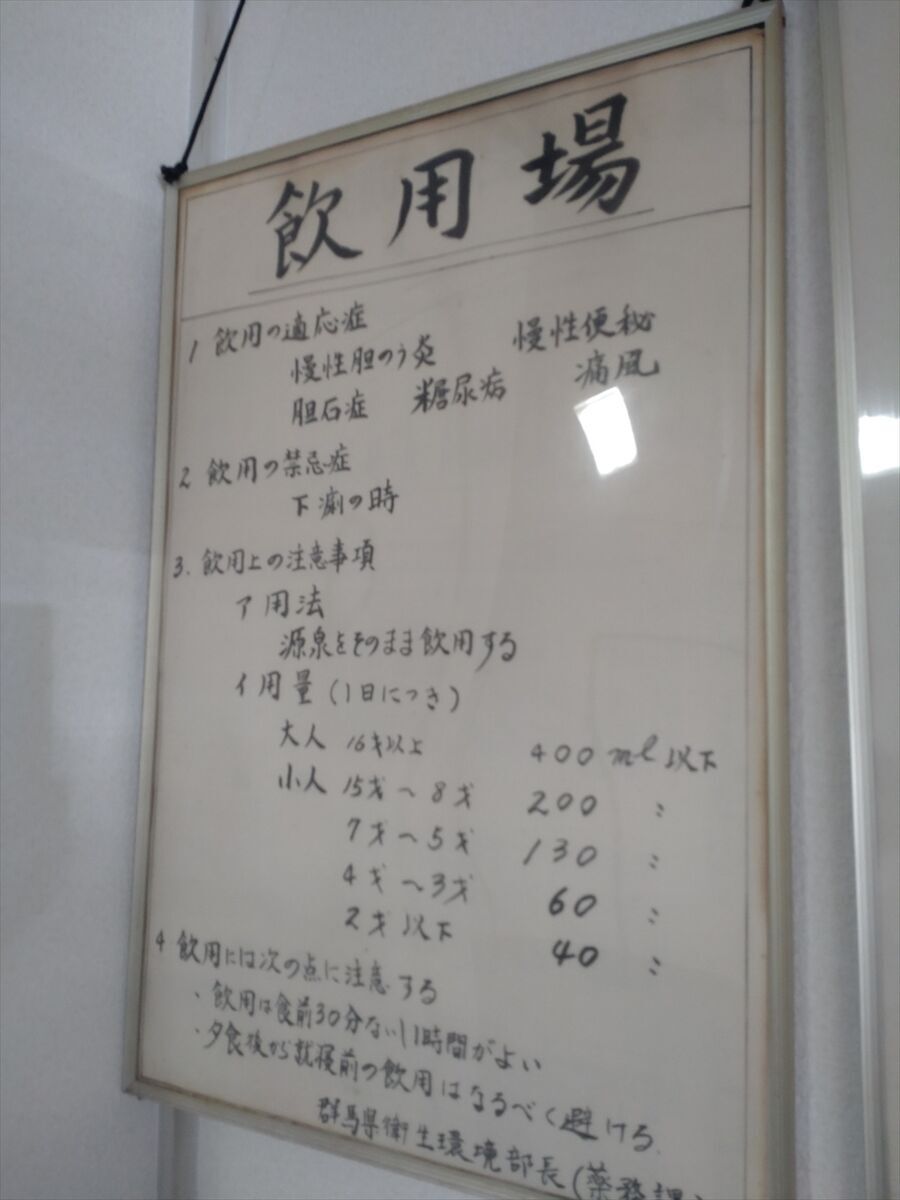 飲用場
1 飲用の適応症
慢性胆のう炎 慢性便秘
胆石症 糖尿病 痛風
2 飲用の禁忌症
下痢の時
3. 飲用上の注意事項
ア 用法
源泉をそのまま飲用する
イ 用量(1日につき)
大人 16才以上 400 ml 以下
小人 15才〜8才 200 〃
7才〜5才 130 〃
4才〜3才 60 〃
2才以下 40 〃
4 飲用には次の点に注意する
・飲用は食前30分ないし1時間がよい
・夕食後から就寝前の飲用はなるべく避ける.
群馬県衛生環境部長(薬務課)